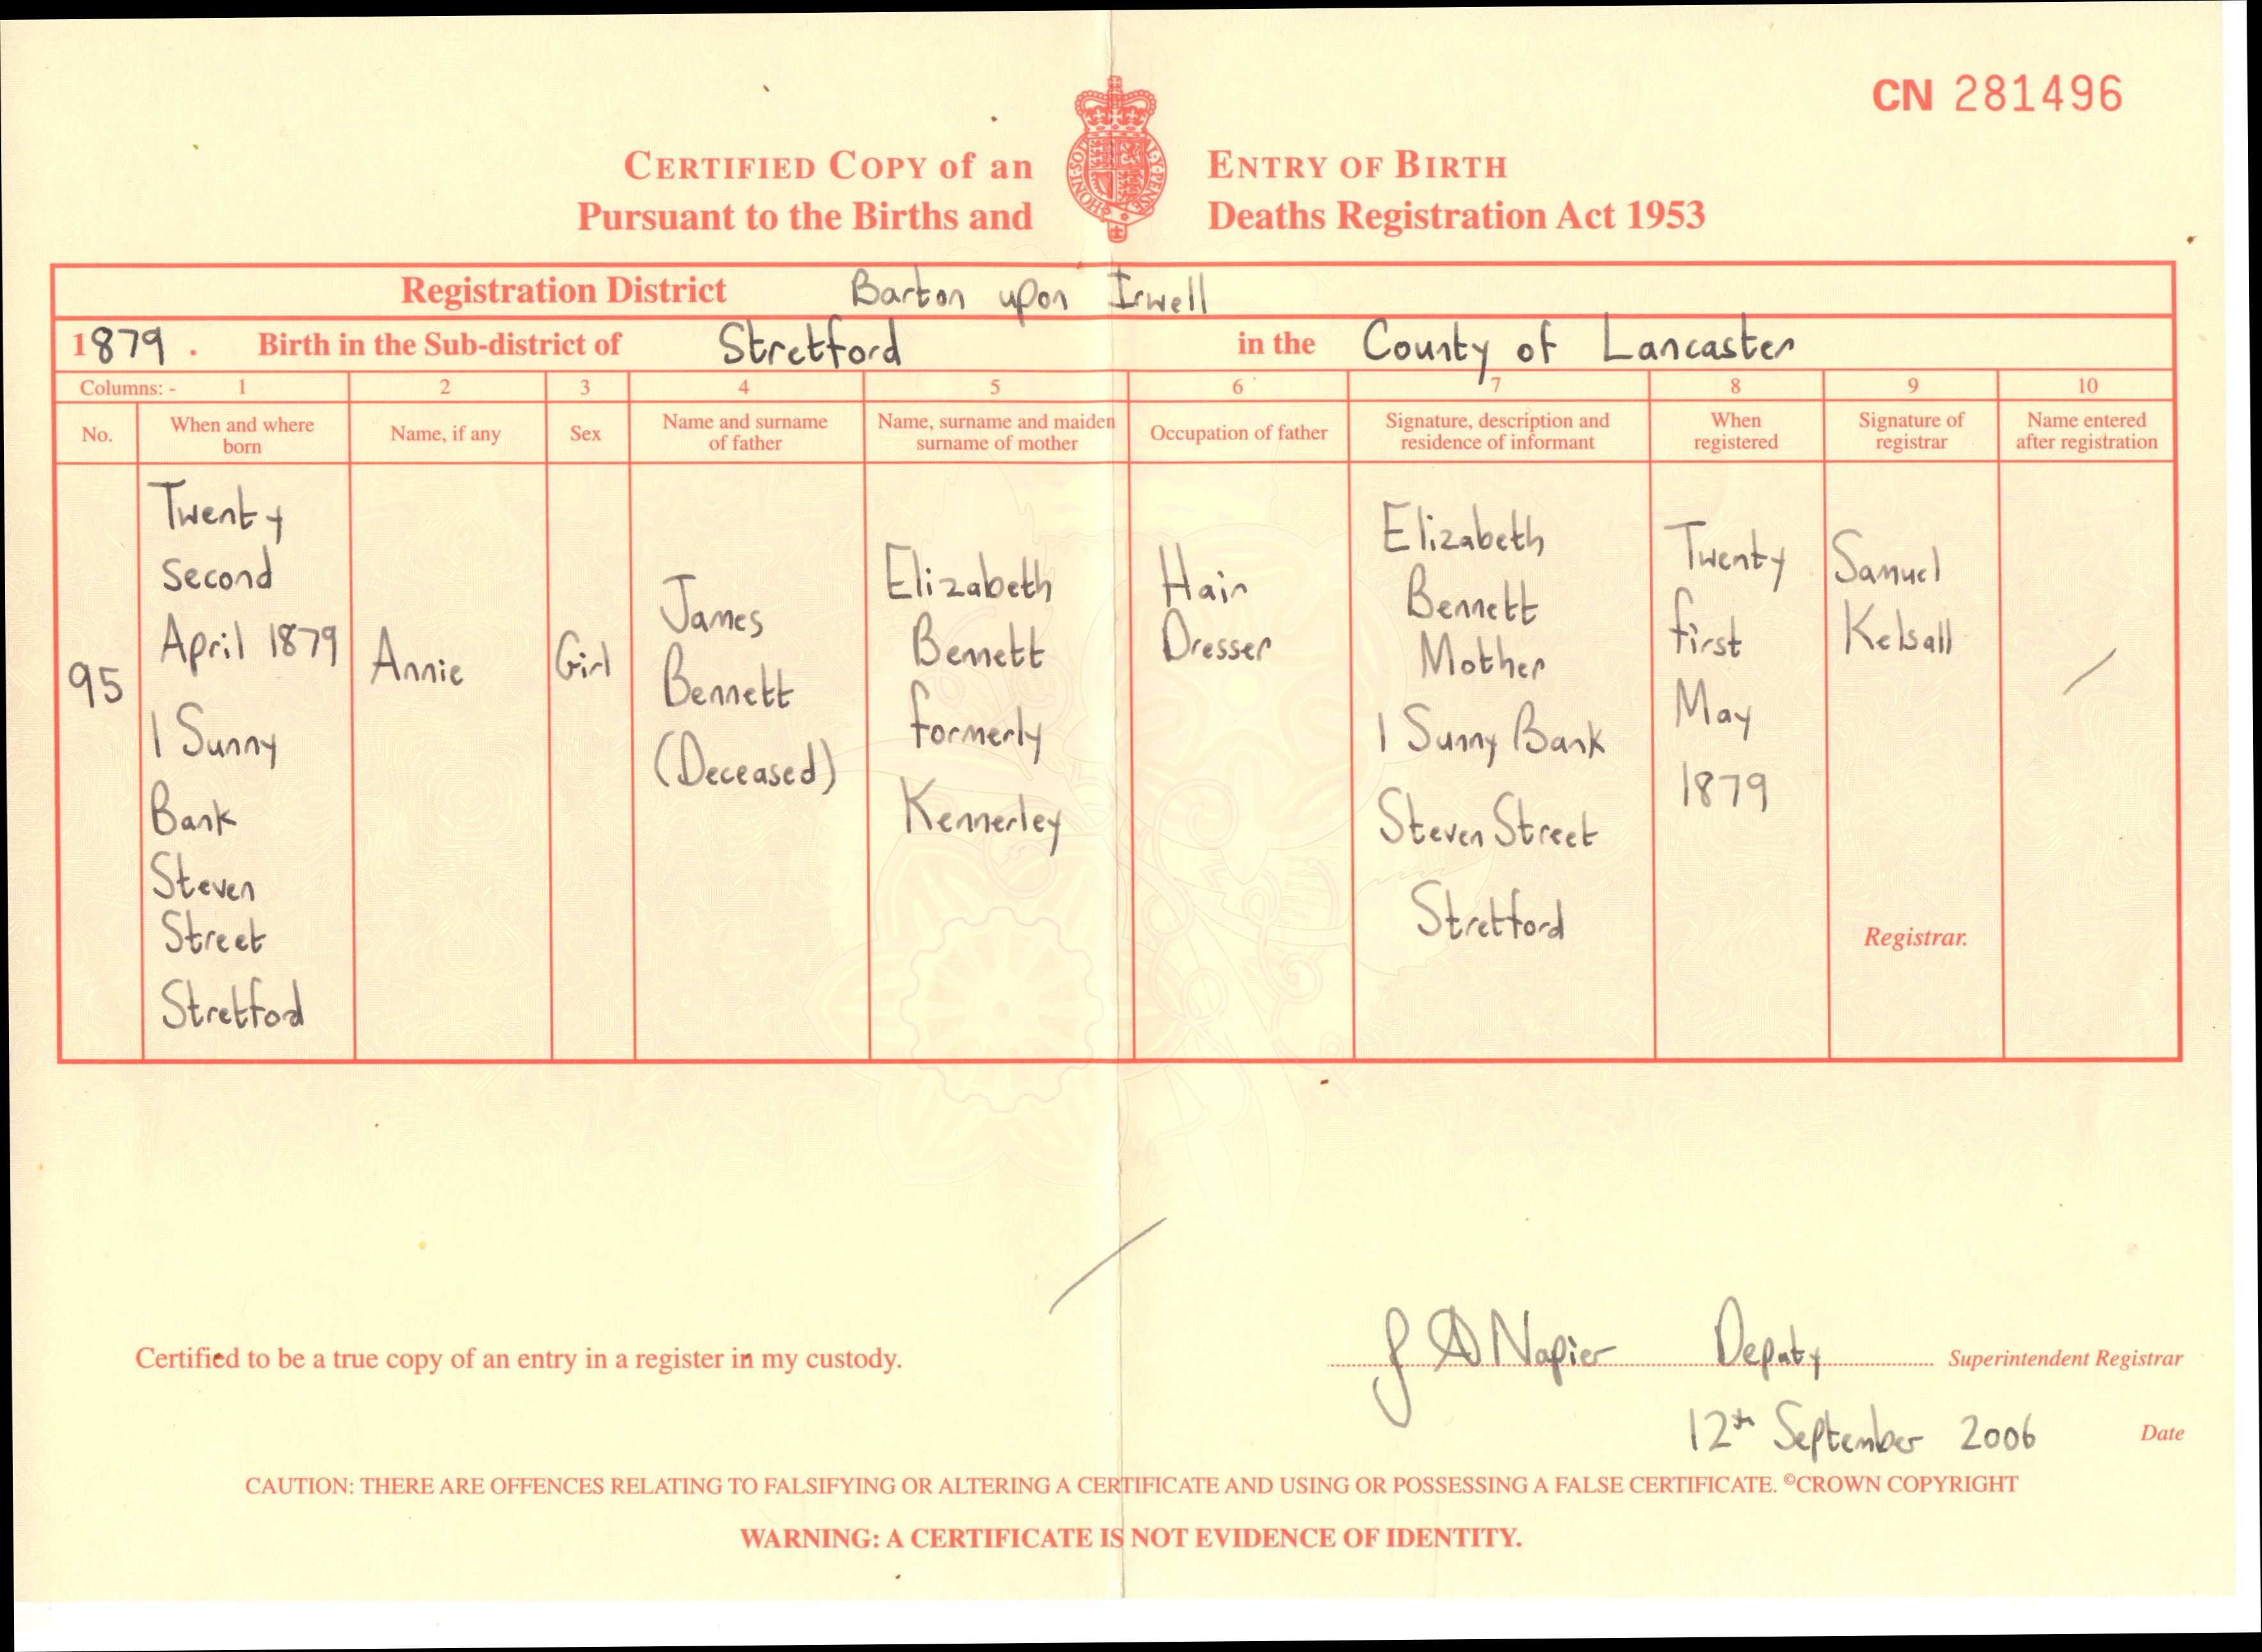 CN 281496
CERTIFIED COPY of an ENTRY OF BIRTH
Pursuant to the Births and Deaths Registration Act 1953
Registration District Barton upon Irwell
1879. Birth in the Sub-district of Stretford in the County of Lancaster
Columns: - 1 2 3 4 5 6 7 8 9 10
No.
When and where
born
Name, if any
Sex
Name and surname
of father
Name, surname and maiden
surname of mother
Occupation of father
Signature, description and
residence of informant
When
registered
Signature of
registrar
Name entered
after registration
95
Twenty
second
April 1879
1 Sunny
Bank
Steven
Street
Stretford
Annie
Girl
James
Bennett
(Deceased)
Elizabeth
Bennett
formerly
Kennerley
Hair
Dresser
Elizabeth
Bennett
Mother
1 Sunny Bank
Steven Street
Stretford
Twenty
first
May
1879
Samuel
Kelsall
Registrar.
Certified to be a true copy of an entry in a register in my custody.
J A Napier Deputy Superintendent Registrar
12th September 2006 Date
CAUTION: THERE ARE OFFENCES RELATING TO FALSIFYING OR ALTERING A CERTIFICATE AND USING OR POSSESSING A FALSE CERTIFICATE. ©CROWN COPYRIGHT
WARNING: A CERTIFICATE IS NOT EVIDENCE OF IDENTITY.